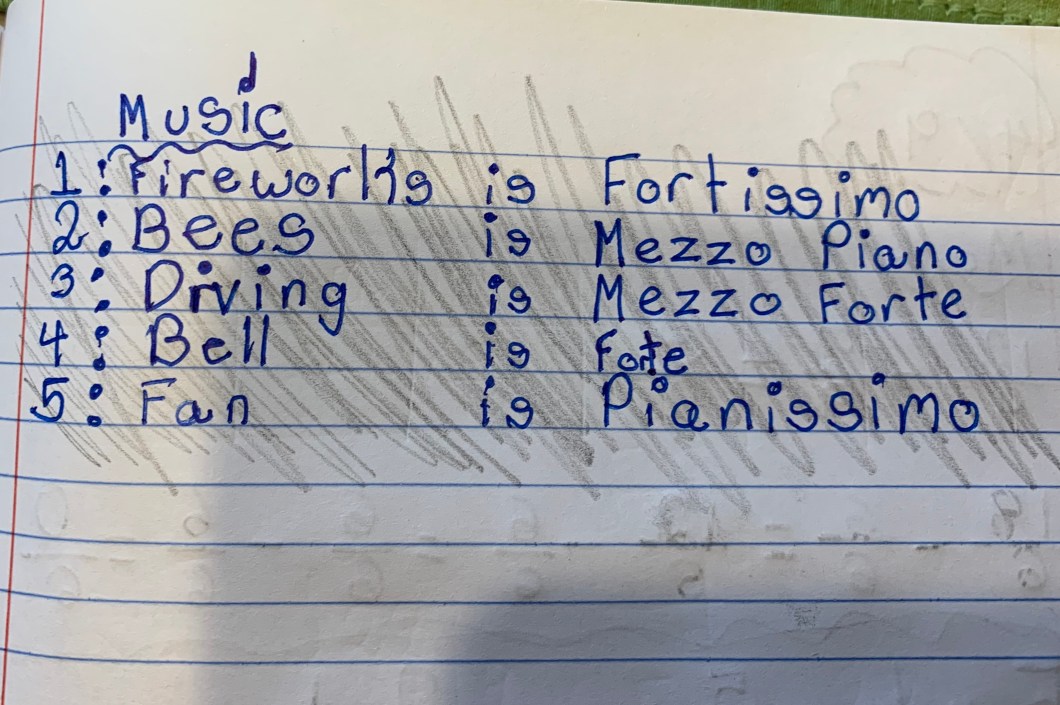 Music
1: Fireworks is Fortissimo
2: Bees is Mezzo Piano
3: Diving is Mezzo Forte
4: Bell is fote
5: Fan is Pianissimo